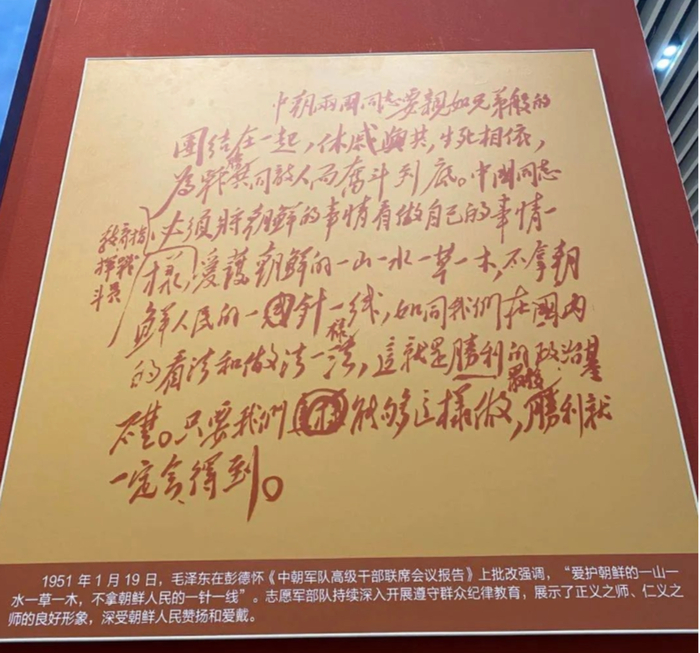 中朝两國同志要親如兄弟般的
團结在一起,休戚與共,生死相依,
為戰勝共同敌人而奮斗到底。中國同志
必须將朝鲜的事情看做自己的事情一
樣,
教育指
揮員戰
斗員
愛護朝鲜的一山一水一草一木,不拿朝
鲜人民的一針一线,如同我們在國内
的看法和做法一樣,這就是勝利的政治基
礎。只要我們能夠這樣做,最後勝利就
一定會得到。
1951年1月19日,毛泽东在彭德怀《中朝军队高级干部联席会议报告》上批改强调,“爱护朝鲜的一山一
水一草一木,不拿朝鲜人民的一针一线”。志愿军部队持续深入开展遵守群众纪律教育,展示了正义之师、仁义之
师的良好形象,深受朝鲜人民赞扬和爱戴。